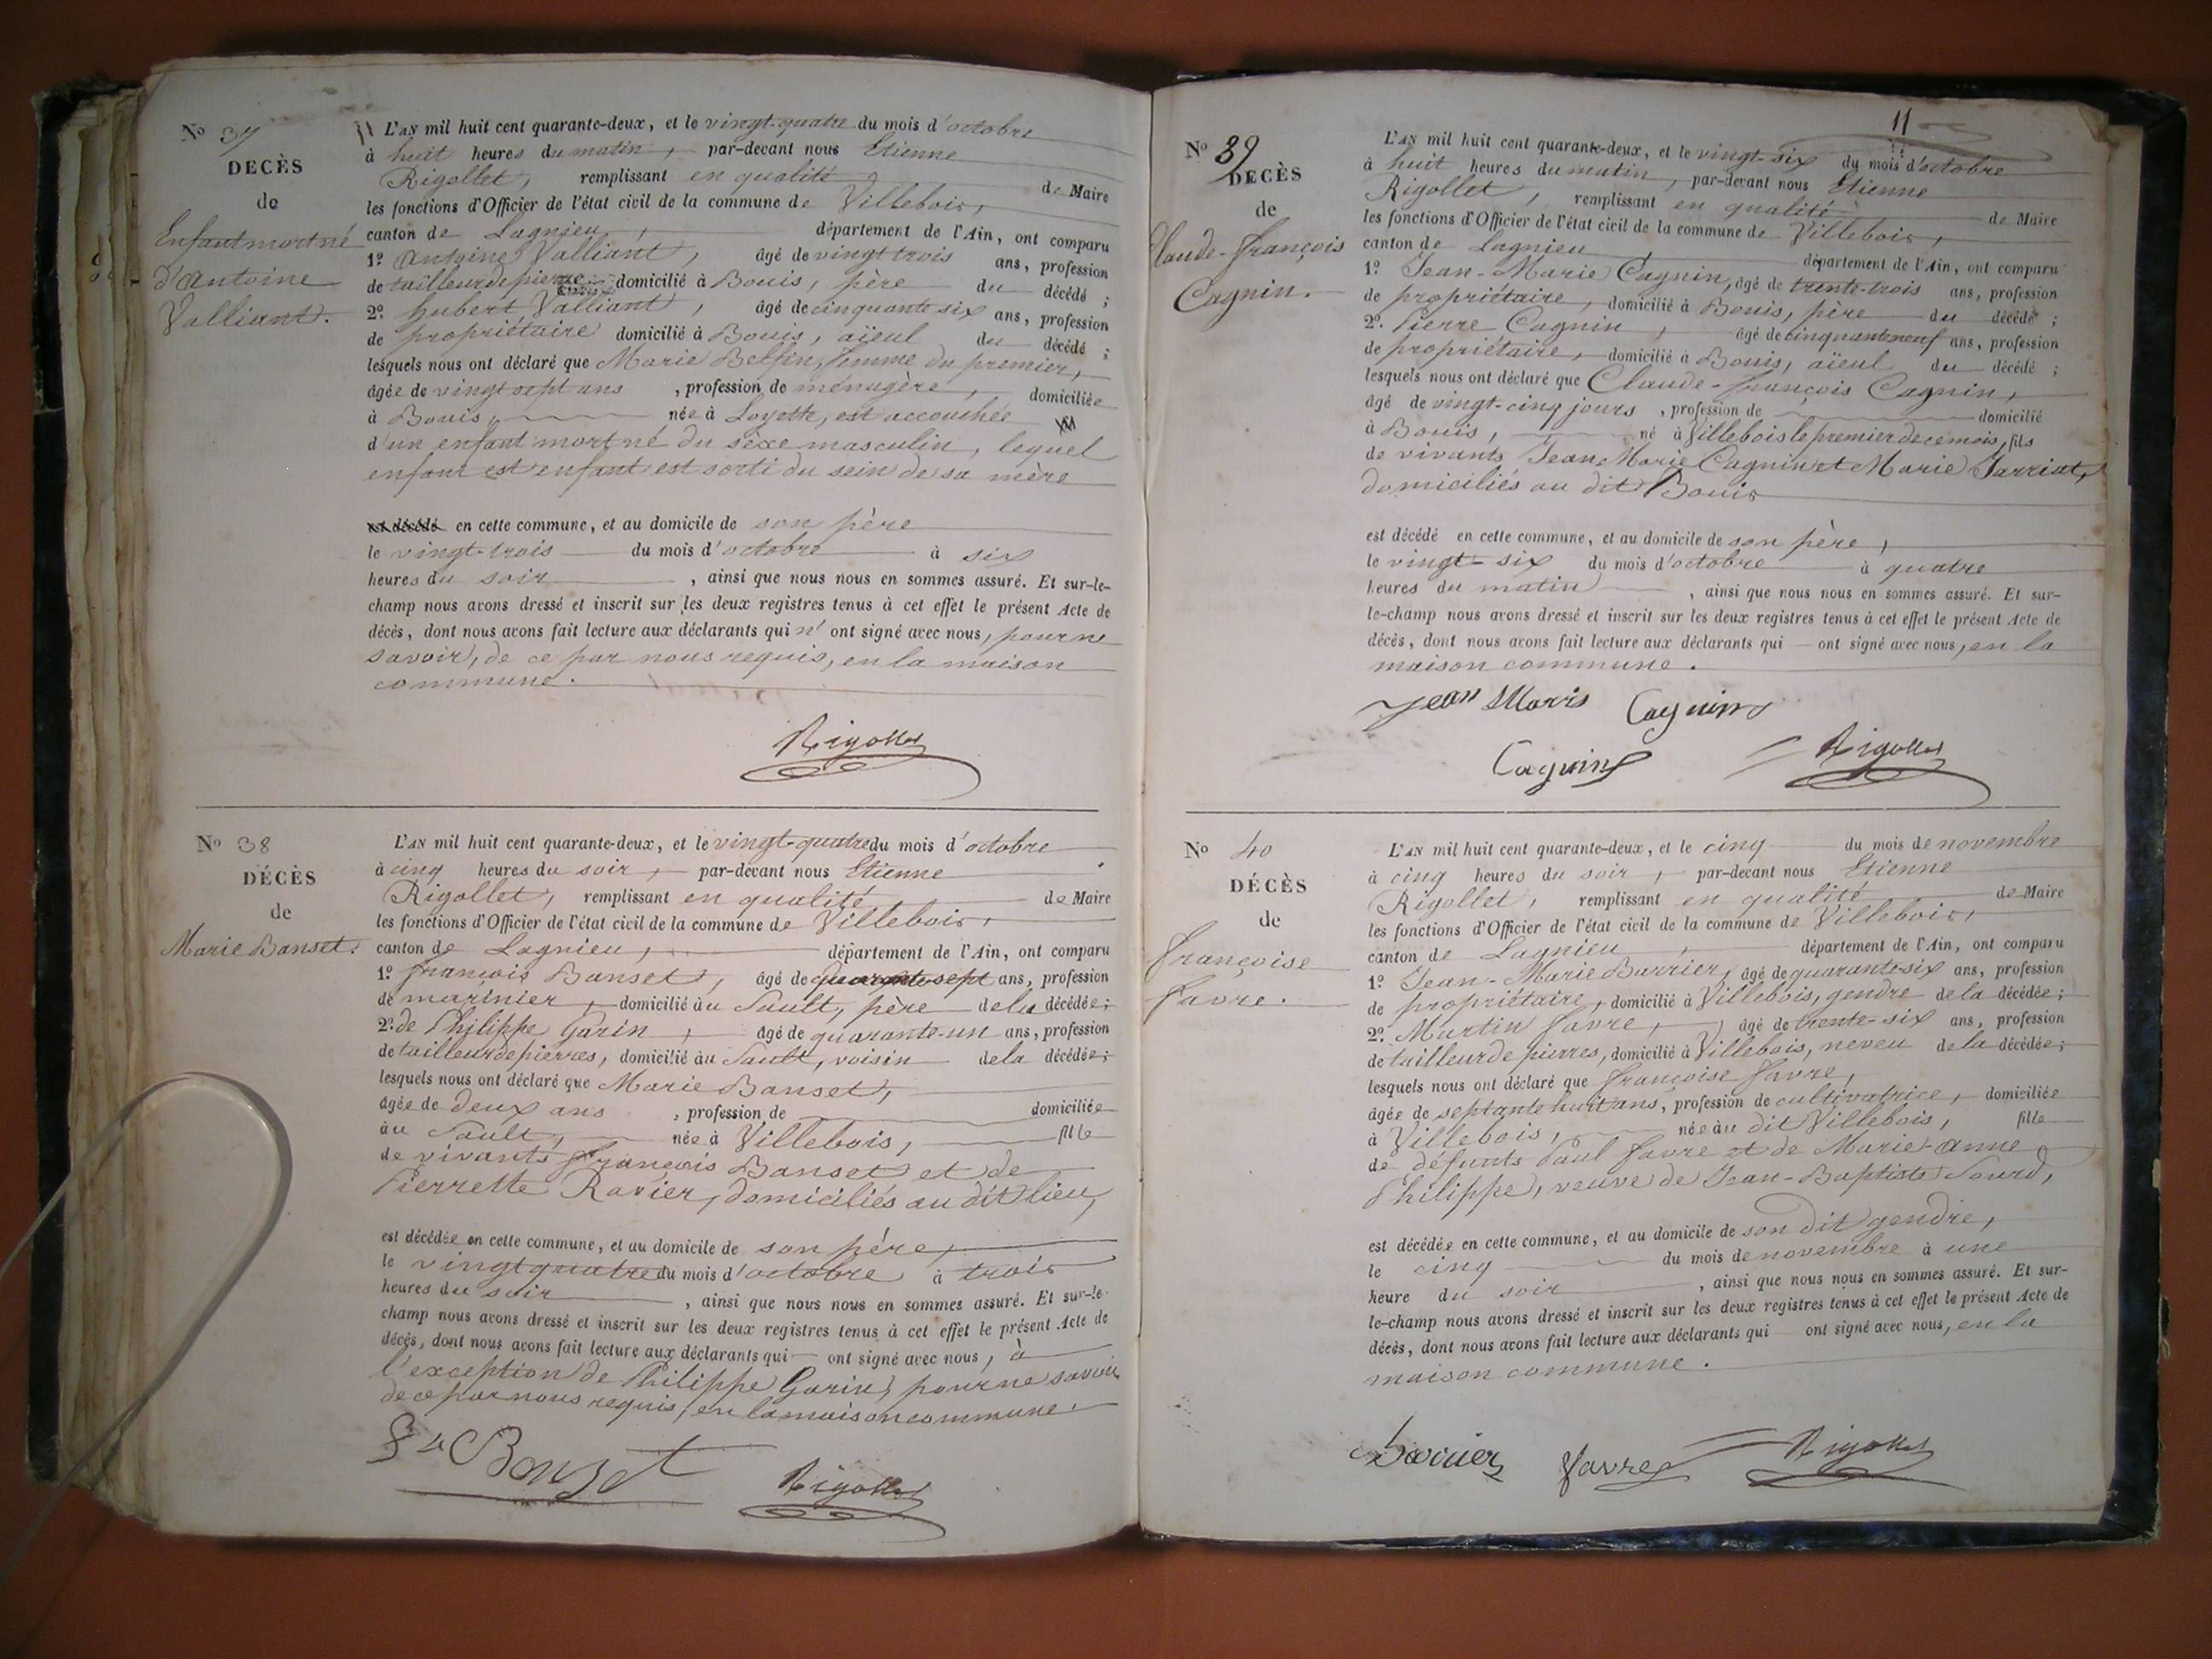 Nº 37
DECÈS
de
Enfant mort né
d'Antoine
Valliant.
L'AN mil huit cent quarante-deux, et le vingt-quatre du mois d'octobre
à huit heures du matin, par-devant nous Etienne
Rigollet, remplissant en qualité de Maire
les fonctions d'Officier de l'état civil de la commune de Villebois,
canton de Lagnieu, département de l'Ain, ont comparu
1º Antoine Valliant, âgé de vingt trois ans, profession
de tailleur de pierre domicilié à Bouis, père du décédé ;
2º hubert Valliant, âgé de cinquante six ans, profession
de propriétaire domicilié à Bouis, aïeul du décédé ;
lesquels nous ont déclaré que Marie Belfin, femme du premier,
âgée de vingt sept ans, profession de ménagère, domiciliée
à Bouis, née à Loyette, est accouchée
d'un enfant mort né du sèxe masculin, lequel
enfant est enfant est sorti du sein de sa mère
est décédé en cette commune, et au domicile de son père
le vingt-trois du mois d'octobre à six
heures du soir, ainsi que nous nous en sommes assuré. Et sur-le-
champ nous avons dressé et inscrit sur les deux registres tenus à cet effet le présent Acte de
décès, dont nous avons fait lecture aux déclarants qui n'ont signé avec nous, pour ne
savoir, de ce par nous requis, en la maison
commune.
Rigollet
Nº 38
DÉCÈS
de
Marie Banset.
L'AN mil huit cent quarante-deux, et le vingt-quatre du mois d'octobre
à cinq heures du soir, par-devant nous Etienne
Rigollet, remplissant en qualité de Maire
les fonctions d'Officier de l'état civil de la commune de Villebois,
canton de Lagnieu, département de l'Ain, ont comparu
1º françois Banset, âgé de quarante-sept ans, profession
de marinier, domicilié au Sault, père de la décédée ;
2º de Philippe Garin, âgé de quarante-un ans, profession
de tailleur de pierres, domicilié au Sault, voisin de la décédée ;
lesquels nous ont déclaré que Marie Banset,
âgée de deux ans, profession de domiciliée
au Sault, née à Villebois, fille
de vivants françois Banset et de
Pierrette Ravier, domiciliés au dit lieu,
est décédée en cette commune, et au domicile de son père,
le vingt quatre du mois d'octobre à trois
heures du soir, ainsi que nous nous en sommes assuré. Et sur-le-
champ nous avons dressé et inscrit sur les deux registres tenus à cet effet le présent Acte de
décès, dont nous avons fait lecture aux déclarants qui ont signé avec nous, à
l'exception de Philippe Garin, pour ne savoir
de ce par nous requis, en la maison commune.
Banset
Rigollet
11
Nº 39
DECÈS
de
Claude-françois
Cagnin.
L'AN mil huit cent quarante-deux, et le vingt-six du mois d'octobre
à huit heures du matin, par-devant nous Etienne
Rigollet, remplissant en qualité de Maire
les fonctions d'Officier de l'état civil de la commune de Villebois,
canton de Lagnieu département de l'Ain, ont comparu
1º Jean-Marie Cagnin, âgé de trente-trois ans, profession
de propriétaire, domicilié à Bouis, père du décédé ;
2º. Pierre Cagnin, âgé de cinquante neuf ans, profession
de propriétaire, domicilié à Bouis, aïeul du décédé ;
lesquels nous ont déclaré que Claude-françois Cagnin,
âgé de vingt-cinq jours, profession de domicilié
à Bouis, né à Villebois le premier de ce mois, fils
de vivants Jean-Marie Cagnin et Marie Jarriat,
domiciliés au dit Bouis
est décédé en cette commune, et au domicile de son père,
le vingt-six du mois d'octobre à quatre
heures du matin, ainsi que nous nous en sommes assuré. Et sur-
le-champ nous avons dressé et inscrit sur les deux registres tenus à cet effet le présent Acte de
décès, dont nous avons fait lecture aux déclarants qui ont signé avec nous, en la
maison commune.
Jean Maris Cagnin
Cagnin Rigollet
Nº 40
DÉCÈS
de
françoise
favre.
L'AN mil huit cent quarante-deux, et le cinq du mois de novembre
à cinq heures du soir, par-devant nous Etienne
Rigollet, remplissant en qualité de Maire
les fonctions d'Officier de l'état civil de la commune de Villebois,
canton de Lagnieu, département de l'Ain, ont comparu
1º Jean-Marie Barrier, âgé de quarante-six ans, profession
de propriétaire, domicilié à Villebois, gendre de la décédée ;
2º. Martin favre, âgé de trente-six ans, profession
de tailleur de pierres, domicilié à Villebois, neveu de la décédée ;
lesquels nous ont déclaré que françoise favre,
âgée de septante huit ans, profession de cultivatrice, domiciliée
à Villebois, née au dit Villebois, fille
de défunts Paul favre et de Marie-Anne
Philippe, veuve de Jean-Baptiste Sourd,
est décédée en cette commune, et au domicile de son dit gendre,
le cinq du mois de novembre à une
heure du soir, ainsi que nous nous en sommes assuré. Et sur-
le-champ nous avons dressé et inscrit sur les deux registres tenus à cet effet le présent Acte de
décès, dont nous avons fait lecture aux déclarants qui ont signé avec nous, en la
maison commune.
Barrier favre Rigollet